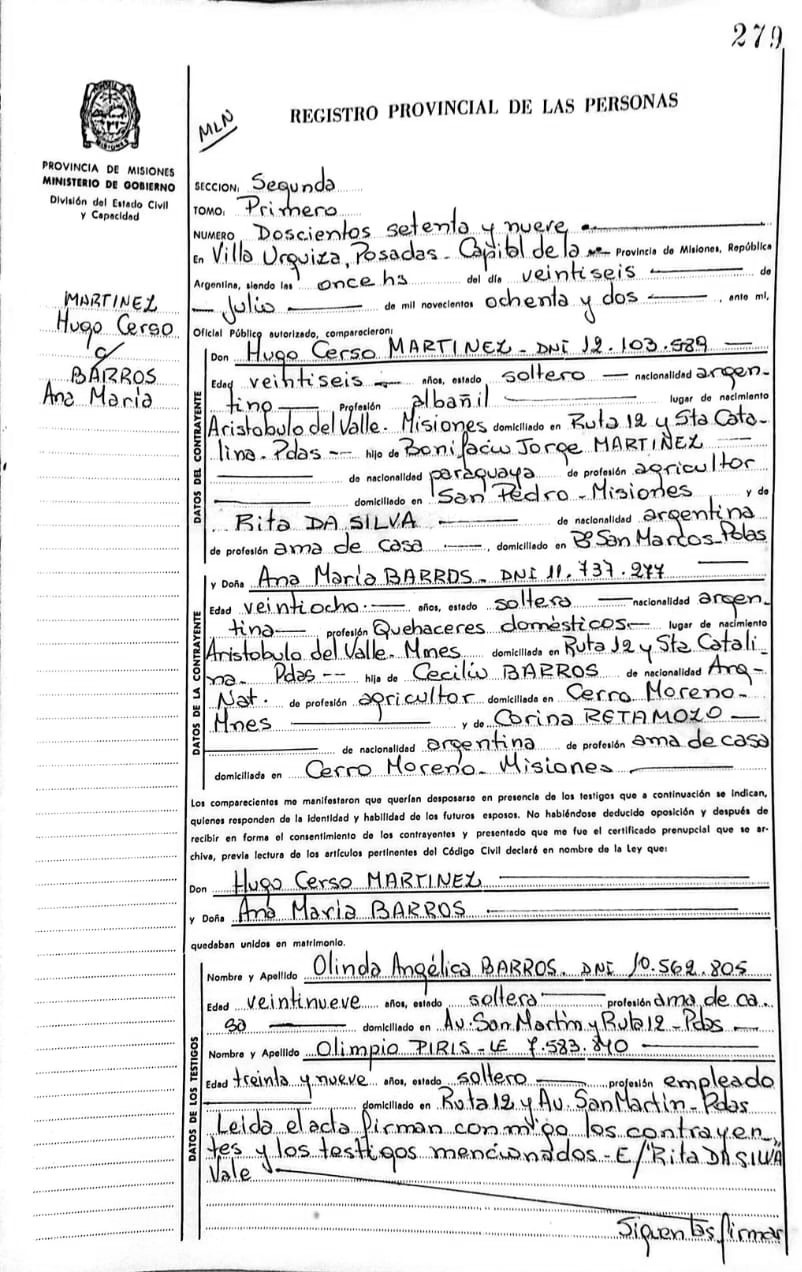 279
MLN
REGISTRO PROVINCIAL DE LAS PERSONAS
PROVINCIA DE MISIONES
MINISTERIO DE GOBIERNO
División del Estado Civil
y Capacidad
MARTINEZ
Hugo Cerso
c/
BARROS
Ana María
SECCION: Segunda
TOMO: Primero
NUMERO Doscientos setenta y nueve
En Villa Urquiza, Posadas - Capital de la Provincia de Misiones, República
Argentina, siendo las once hs del día veintiseis de
Julio de mil novecientos ochenta y dos, ante mí,
Oficial Público autorizado, comparecieron:
DATOS DEL CONTRAYENTE
Don Hugo Cerso MARTINEZ - DNI 12.103.589
Edad veintiseis años, estado soltero nacionalidad argen-
tino Profesión albañil lugar de nacimiento
Aristobulo del Valle. Misiones domiciliado en Ruta 12 y Sta Cata-
lina - Pdas -- hijo de Bonifacio Jorge MARTINEZ
de nacionalidad paraguaya de profesión agricultor
domiciliado en San Pedro - Misiones y de
Rita DA SILVA de nacionalidad argentina
de profesión ama de casa, domiciliado en Bº San Marcos - Pdas
DATOS DE LA CONTRAYENTE
y Doña Ana María BARROS - DNI 11.737.277
Edad veintiocho años, estado soltera nacionalidad argen-
tina profesión Quehaceres domésticos lugar de nacimiento
Aristobulo del Valle - Mnes domiciliada en Ruta 12 y Sta Catali-
na - Pdas -- hija de Cecilio BARROS de nacionalidad Arg-
Nat. de profesión agricultor domiciliado en Cerro Moreno -
Mnes y de Corina RETAMOZO
de nacionalidad argentina de profesión ama de casa
domiciliada en Cerro Moreno - Misiones
Los comparecientes me manifestaron que querían desposarse en presencia de los testigos que a continuación se indican,
quienes responden de la identidad y habilidad de los futuros esposos. No habiéndose deducido oposición y después de
recibir en forma el consentimiento de los contrayentes y presentado que me fue el certificado prenupcial que se ar-
chiva, previa lectura de los artículos pertinentes del Código Civil declaré en nombre de la Ley que:
Don Hugo Cerso MARTINEZ
y Doña Ana María BARROS
quedaban unidos en matrimonio.
DATOS DE LOS TESTIGOS
Nombre y Apellido Olinda Angélica BARROS. DNI 10.562.805
Edad veintinueve años, estado soltera profesión ama de ca-
sa domiciliado en Av. San Martin y Ruta 12 - Pdas
Nombre y Apellido Olimpio PIRIS - LE 7.583.840
Edad treinta y nueve años, estado soltero profesión empleado
domiciliado en Ruta 12 y Av. San Martin - Pdas
Leida el acta firman conmigo los contrayen-
tes y los testigos mencionados - E/ Rita DA SILVA
Vale
Siguen las firmas